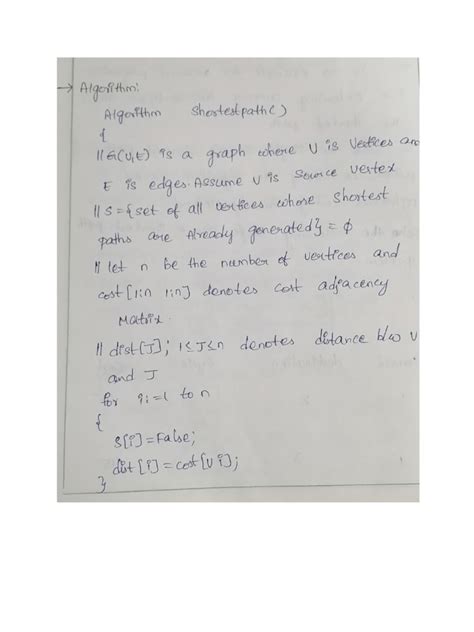 → Algorithm:
Algorithm Shortestpath()
{
// G(V,E) is a graph where V is Vertices and
E is edges. Assume V is Source vertex
// S = {set of all vertices whose shortest
paths are Already generated} = ϕ
// let n be the number of vertices and
cost[1:n 1:n] denotes cost adjacency
Matrix.
// dist[J]; 1≤J≤n denotes distance b/w V
and J
for i:=1 to n
{
S[i]=False;
dist[i]=cost[V i];
}